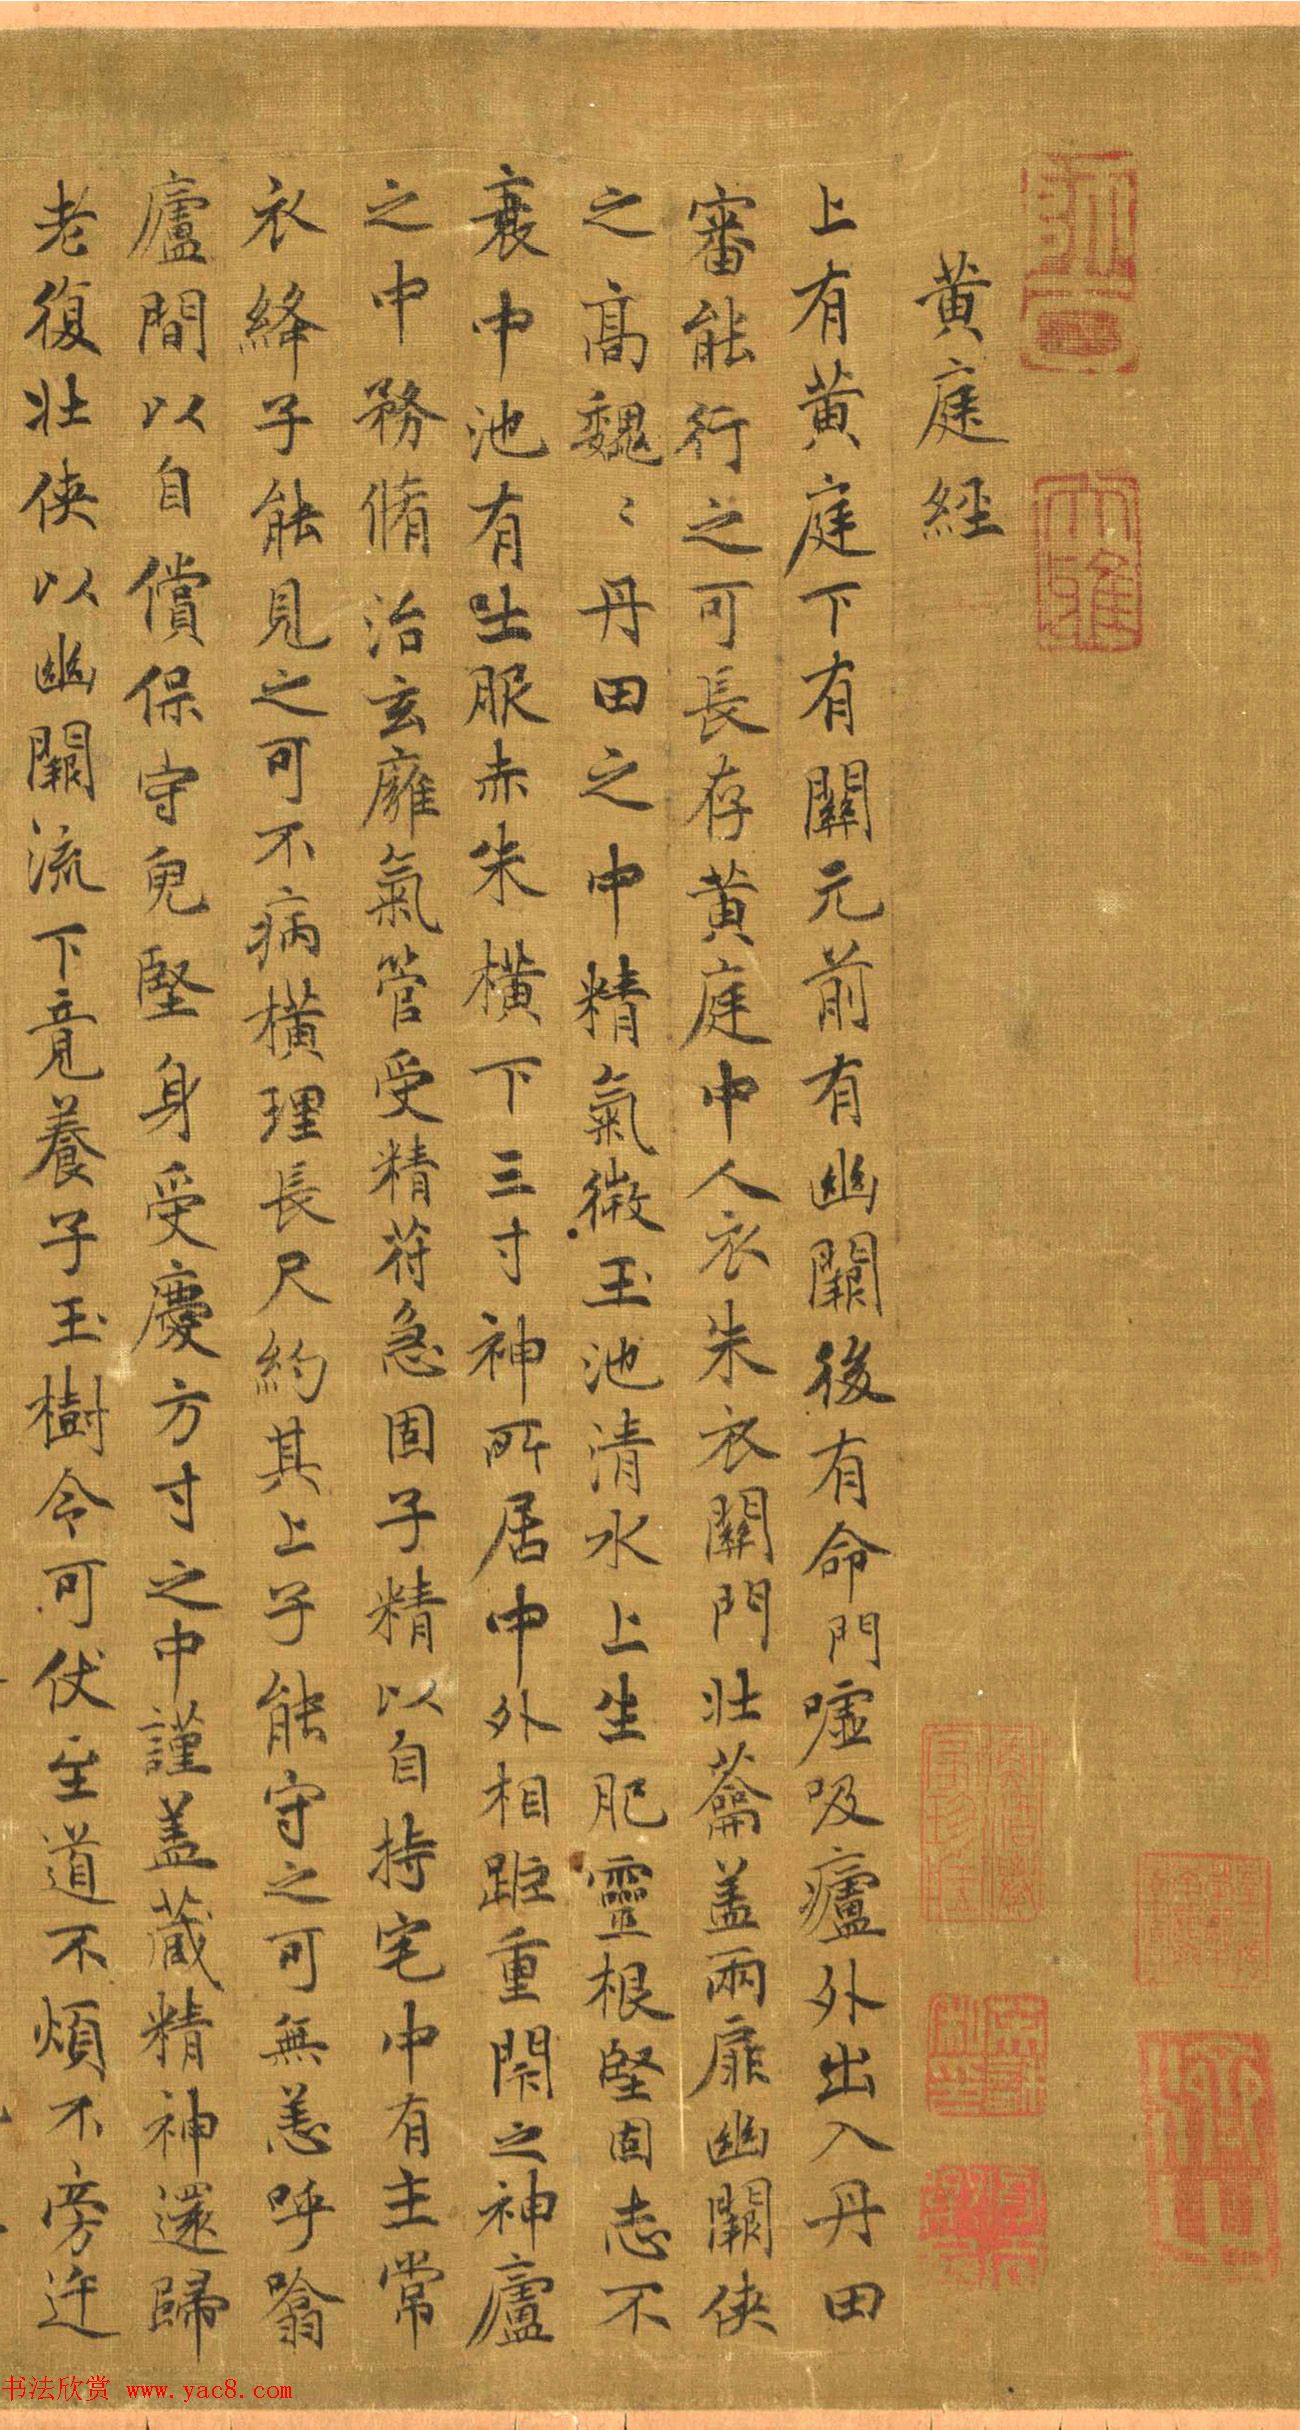 黄庭經
上有黄庭下有關元前有幽闕後有命門噓吸廬外出入丹田
審能行之可長存黄庭中人衣朱衣關門壯蘥盖兩扉幽闕俠
之高魏〻丹田之中精氣微玉池清水上生肥靈根堅固志不
衰中池有士服赤朱橫下三寸神所居中外相距重閇之神廬
之中務脩治玄廱氣管受精符急固子精以自持宅中有主常
衣絳子能見之可不病橫理長尺約其上子能守之可無恙呼噏
廬間以自償保守皃堅身受慶方寸之中謹盖藏精神還歸
老復壯俠以幽闕流下竟養子玉樹令可伏至道不煩不旁迕
书法欣赏 www.yac8.com